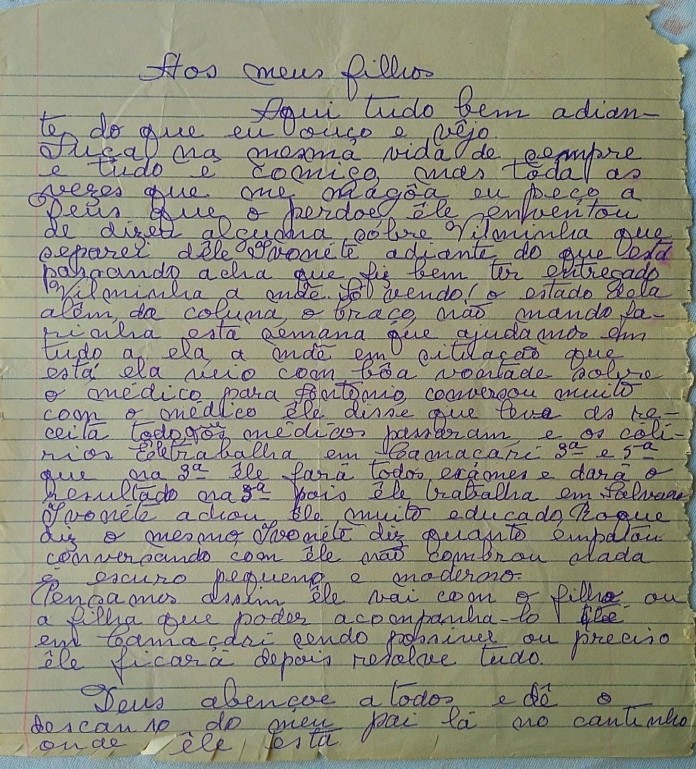 Aos meus filhos
Aqui tudo bem adian-
te do que eu ouço e vêjo.
na mesma vida de sempre
e tudo é comigo, mas tôda as
vezes que me magôa eu peço a
Deus que o perdoe, êle enventou
de dizer alguma sobre Vilminha que
separei dêle Ivonéte adiante do que está
passando acha que fiz bem ter entregado
Vilminha a mãe. vendo o estado dela
além da coluna, o braço, não mando fa-
rinha esta semana que ajudamos em
tudo a ela, a mãe em situação que
está, ela veio com bôa vontade sobre
o médico para Antonio, conversou muito
com o médico êle disse que leve as re-
ceita todos os médicos passaram e os colí-
rios êle trabalha em Camaçari 3ª e 5ª
que na 3ª êle fará todos exames e dará o
resultado na 3ª pois êle trabalha em Salvador
Ivonéte achou êle muito educado, Roque
diz o mesmo Ivonéte diz quanto
conversando com êle não combrou nada
é escuro pequeno e moderno.
Pensamos assim êle vai com o filho ou
a filha que poder acompanha-lo
em Camaçari sendo possivel ou preciso
êle ficará depois resolve tudo.
Deus abençoe a todos e dê o
descanso do meu pai lá no cantinho
onde êle está